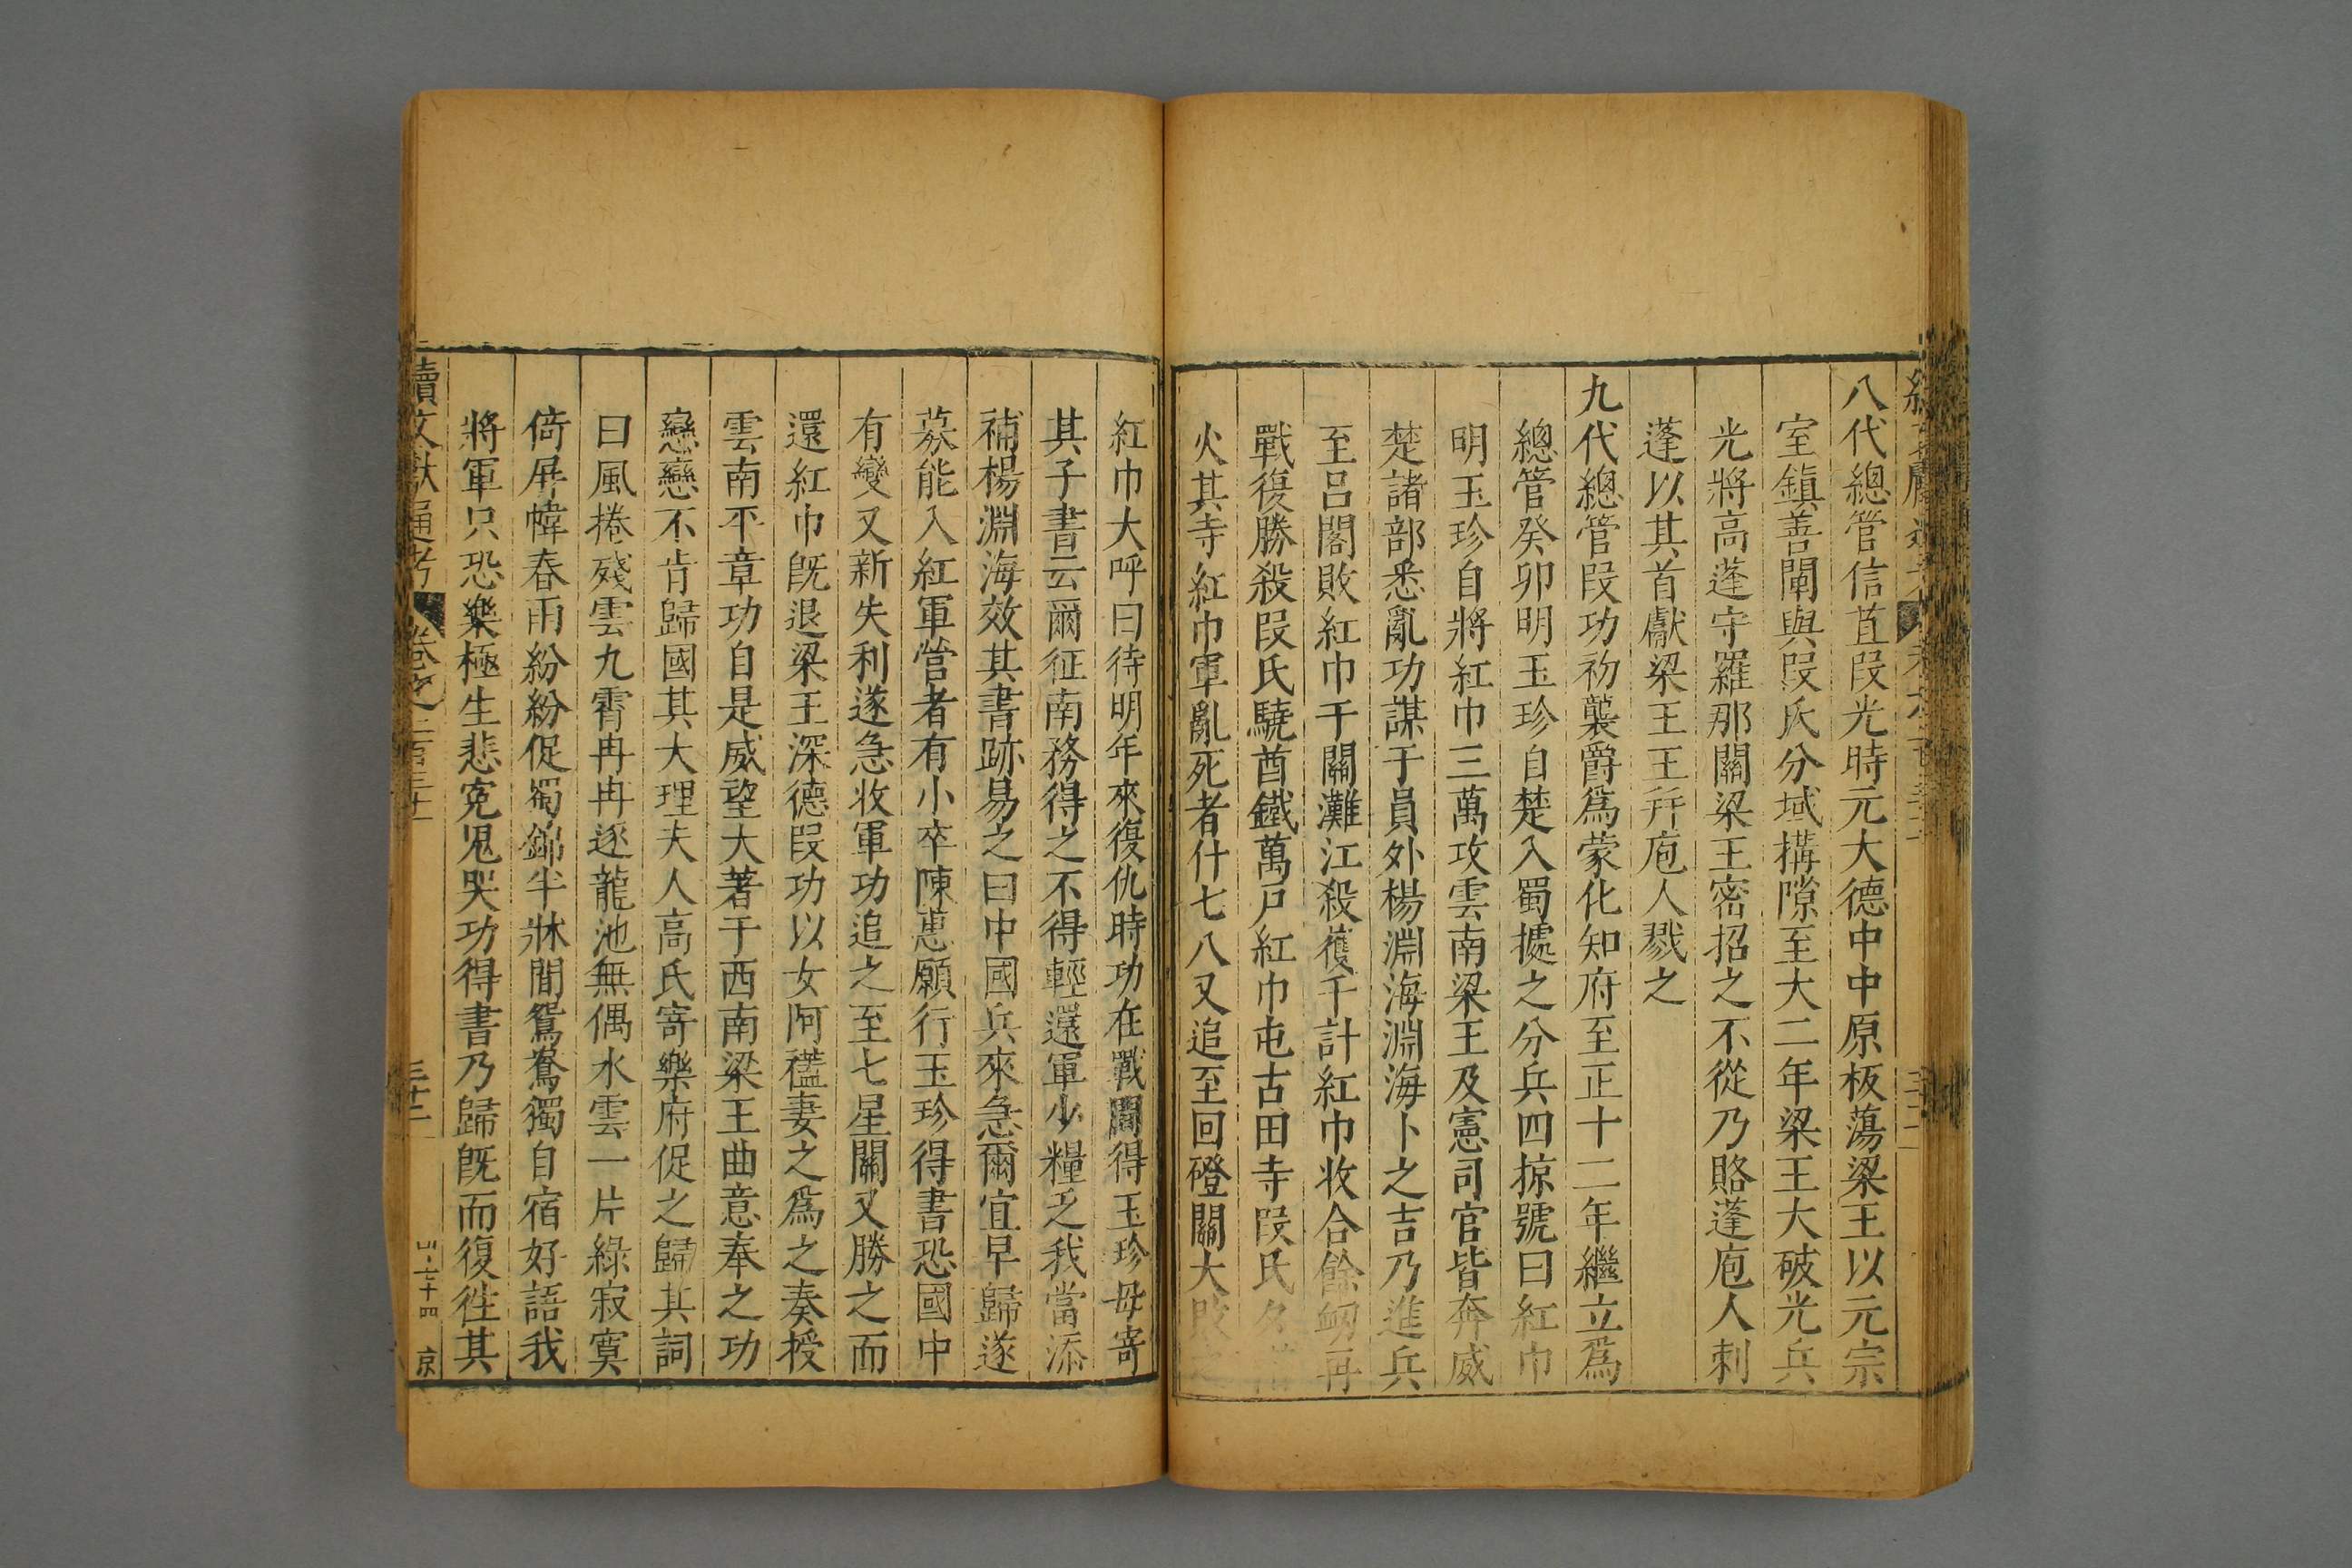 八代總管信苴段光時元大德中中原板蕩梁王以元宗
室鎮善闡與段氏分域搆隙至大二年梁王大破光兵
光將高蓬守羅那關梁王密招之不從乃賂蓬庖人刺
蓬以其首獻梁王王并庖人戮之
九代總管段功初襲爵爲蒙化知府至正十二年繼立爲
總管癸卯明玉珍自楚入蜀據之分兵四掠號曰紅巾
明玉珍自將紅巾三萬攻雲南梁王及憲司官皆奔威
楚諸部悉亂功謀于員外楊淵海淵海卜之吉乃進兵
至呂閣敗紅巾于關灘江殺獲千計紅巾收合餘衂再
戰復勝殺段氏驍酋鐵萬戶紅巾屯古田寺段氏夕
火其寺紅巾軍亂死者什七八又追至回磴關大敗
紅巾大呼曰待明年來復仇時功在戰閫得玉珍母寄
其子書云爾征南務得之不得輕還軍少糧乏我當添
補楊淵海效其書跡易之曰中國兵來急爾宜早歸遂
募能入紅軍營者有小卒陳惠願行玉珍得書恐國中
有變又新失利遂急收軍功追之至七星關又勝之而
還紅巾旣退梁王深德段功以女阿𧞫妻之爲之奏授
雲南平章功自是威望大著于西南梁王曲意奉之功
戀戀不肯歸國其大理夫人高氏寄樂府促之歸其詞
曰風捲殘雲九霄冉冉逐龍池無偶水雲一片綠寂寞
倚屏幃春雨紛紛促蜀錦半牀閒鴛鴦獨自宿好語我
將軍只恐樂極生悲寃鬼哭功得書乃歸旣而復徃其
續文獻通考 卷之二百三十
三十二
京